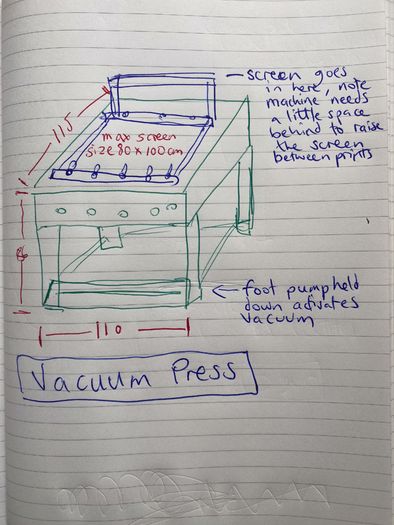 screen goes
in here, note
machine needs
a little space
behind to raise
the screen
between prints
115
max screen
size 80 x 100 cm
foot pump held
down activates
vacuum
110
Vacuum Press